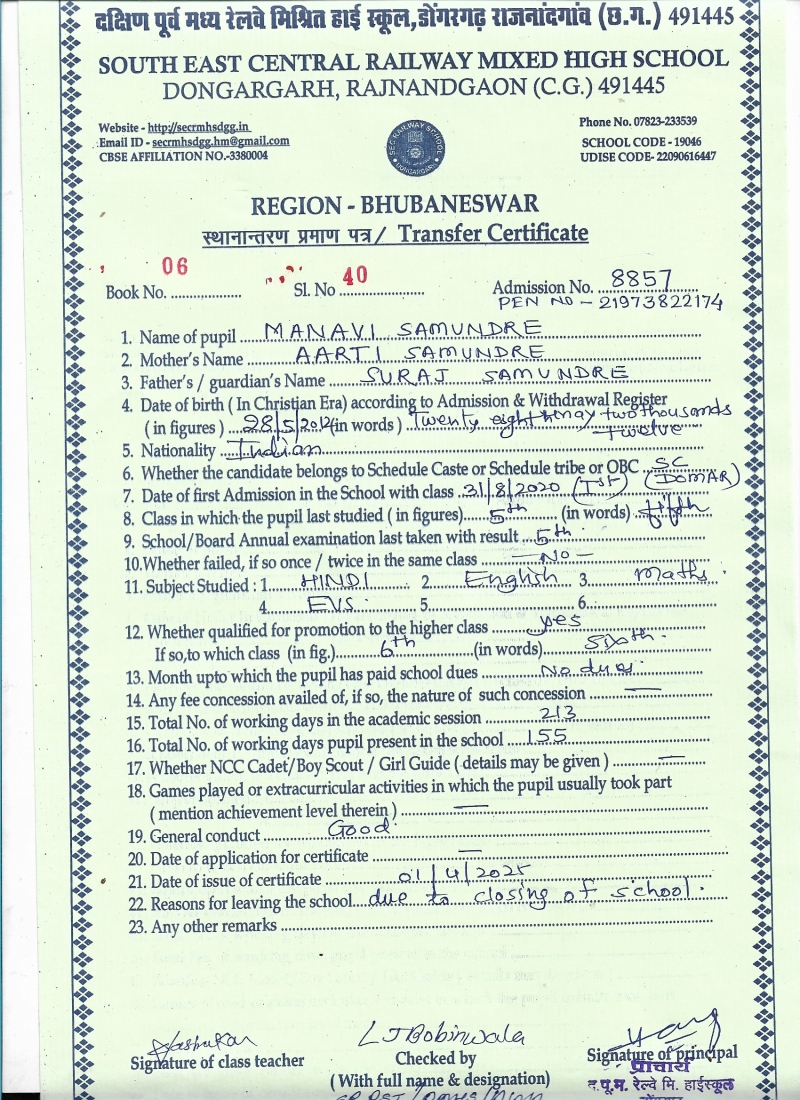 दक्षिण पूर्व मध्य रेलवे मिश्रित हाई स्कूल,डोंगरगढ़ राजनांदगांव (छ.ग.) 491445
SOUTH EAST CENTRAL RAILWAY MIXED HIGH SCHOOL
DONGARGARH, RAJNANDGAON (C.G.) 491445
Website - http://secrmhsdgg.in
Email ID - secrmhsdgg.hm@gmail.com
CBSE AFFILIATION NO.-3380004
SEC RAILWAY SCHOOL
DONGARGARH
Phone No. 07823-233539
SCHOOL CODE - 19046
UDISE CODE- 22090616447
REGION - BHUBANESWAR
स्थानान्तरण प्रमाण पत्र / Transfer Certificate
Book No. 06 Sl. No 40 Admission No. 8857
PEN NO - 21973822174
1. Name of pupil MANAVI SAMUNDRE
2. Mother's Name AARTI SAMUNDRE
3. Father's / guardian's Name SURAJ SAMUNDRE
4. Date of birth ( In Christian Era) according to Admission & Withdrawal Register
( in figures ) 28/5/2012 (in words ) Twenty eight may two thousands
twelve
5. Nationality Indian
6. Whether the candidate belongs to Schedule Caste or Schedule tribe or OBC SC
(DOMAR)
7. Date of first Admission in the School with class 31/8/2020 (Ist)
8. Class in which the pupil last studied ( in figures) 5th (in words) fifth
9. School/Board Annual examination last taken with result 5th
10.Whether failed, if so once / twice in the same class - NO -
11. Subject Studied : 1. HINDI 2. English 3. maths
4. EVS 5. 6.
12. Whether qualified for promotion to the higher class yes
If so,to which class (in fig.) 6th (in words)
13. Month upto which the pupil has paid school dues No dues
14. Any fee concession availed of, if so, the nature of such concession —
15. Total No. of working days in the academic session 213
16. Total No. of working days pupil present in the school 155
17. Whether NCC Cadet/Boy Scout / Girl Guide ( details may be given ) —
18. Games played or extracurricular activities in which the pupil usually took part
( mention achievement level therein ) —
19. General conduct Good
20. Date of application for certificate —
21. Date of issue of certificate 01/4/2025
22. Reasons for leaving the school due to closing of school.
23. Any other remarks
L J Bobinwala
Signature of class teacher Checked by Signature of principal
(With full name & designation) प्राचार्य
द.पू.म. रेल्वे मि. हाईस्कूल